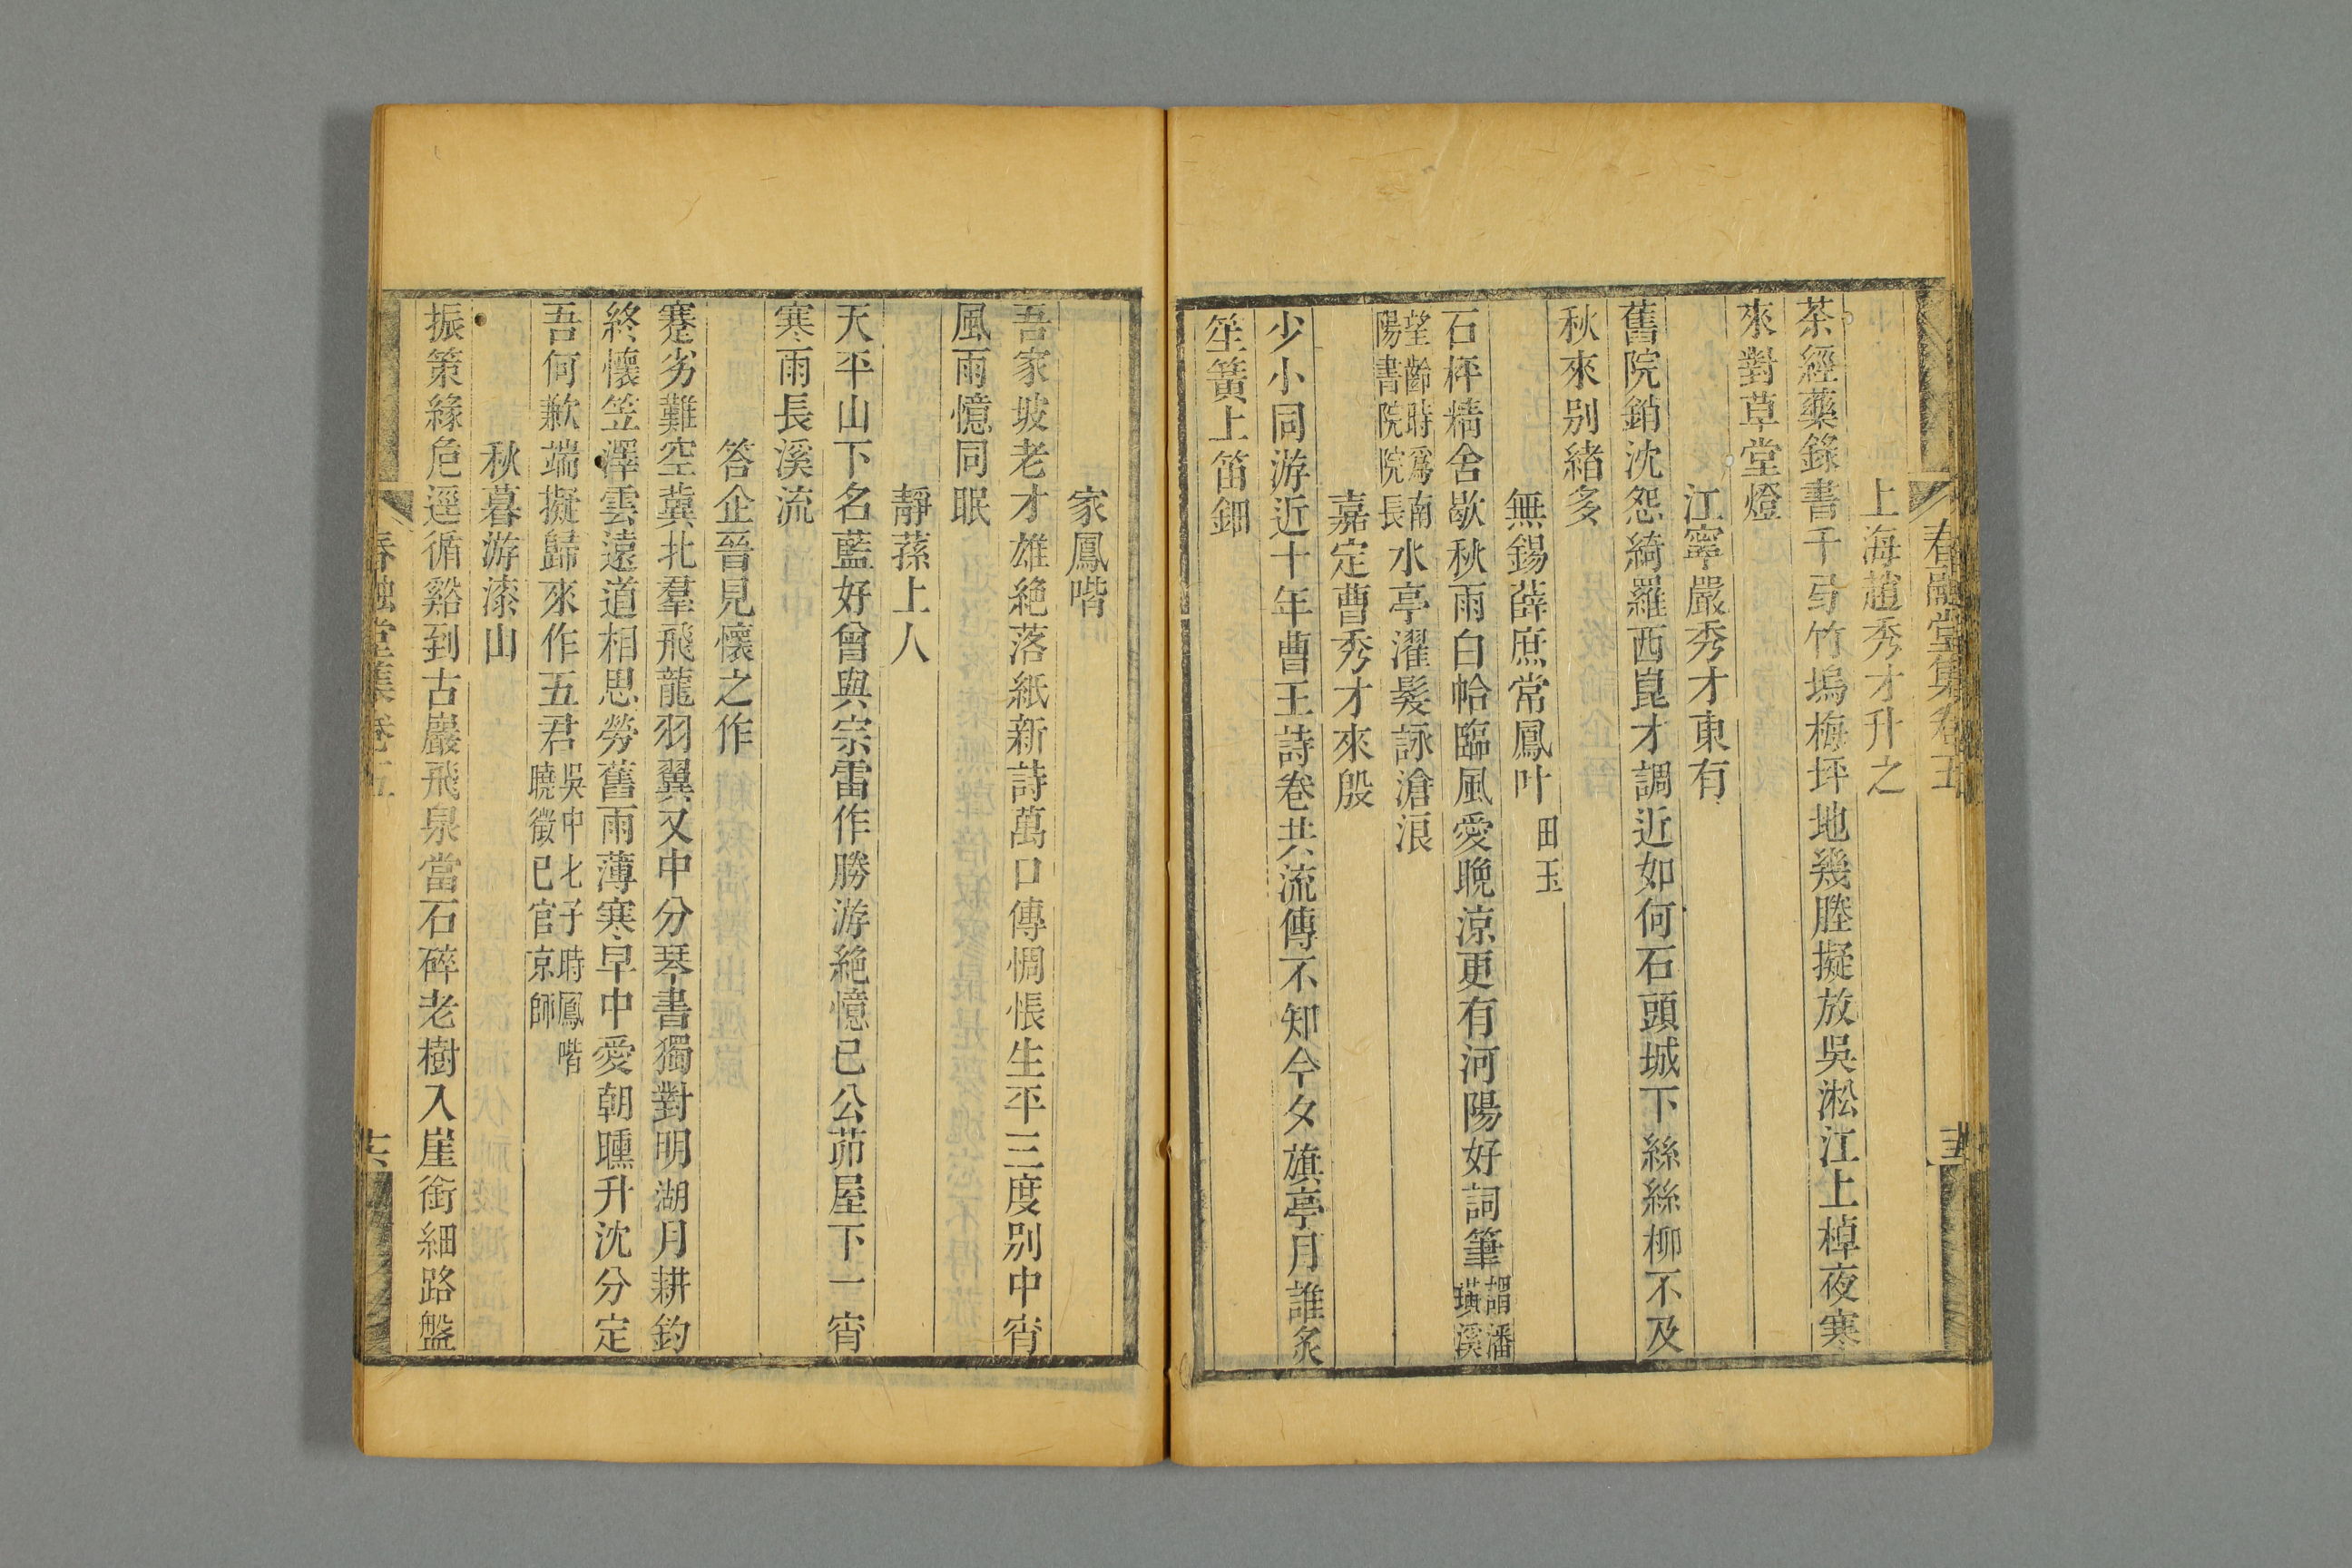 春融堂集卷五
上海趙秀才升之
茶經藥錄書千号竹塢梅坪地幾塍擬放吳淞江上棹夜寒
來對草堂燈
江寧嚴秀才東有
舊院銷沈怨綺羅西崑才調近如何石頭城下絲絲柳不及
秋來别緒多
無錫薛庶常鳳叶田玉
石枰精舍歇秋雨白帢臨風愛晚涼更有河陽好詞筆謂潘璜溪
望齡時爲南陽書院院長水亭濯髮詠滄浪
嘉定曹秀才來殷
少小同游近十年曹王詩卷共流傳不知今夕旗亭月誰炙
笙簧上笛鈿
家鳳喈
吾家坡老才雄絶落紙新詩萬口傳惆悵生平三度别中宵
風雨憶同眠
靜蓀上人
天平山下名藍好曾與宗雷作勝游絶憶已公茆屋下一宵
寒雨長溪流
答企晉見懷之作
蹇劣難空冀北羣飛龍羽翼又中分琴書獨對明湖月耕釣
終懷笠澤雲遠道相思勞舊雨薄寒早中愛朝曛升沈分定
吾何歉端擬歸來作五君吳中七子時鳳喈曉徵已官京師
秋暮游漆山
振策緣危逕循谿到古巖飛泉當石碎老樹入崖銜細路盤
春融堂集卷五
十六